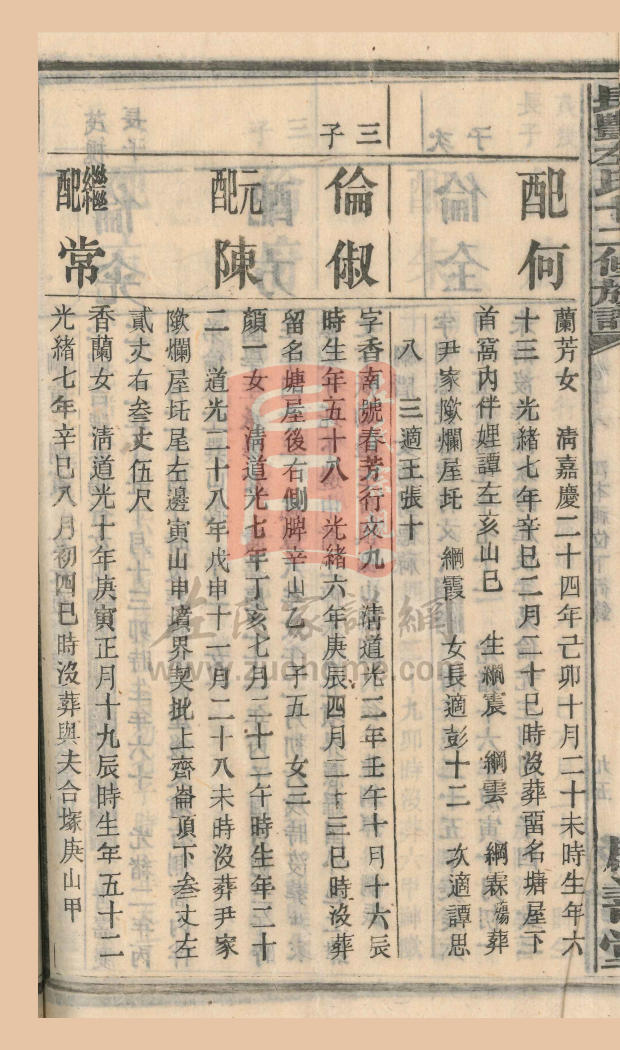 長豐左氏十二修族譜
配何
蘭芳女 淸嘉慶二十四年己卯十月二十未時生年六
十三 光緒七年辛巳二月二十巳時沒葬畱名塘屋下
首窩内伴娌譚左亥山巳 生綱震 綱雲 綱霖殤葬
尹家隞爛屋坵 綱霞 女長適彭十二 次適譚思
八 三適王張十
三子
倫俶
字香南號春芳行亥九 淸道光二年壬午十月十六辰
時生年五十八 光緒六年庚辰四月二十三巳時沒葬
留名塘屋後右側脾辛山乙 子五 女三
元配陳
顏一女 淸道光七年丁亥七月二十二午時生年二十
二 道光二十八年戊申十一月二十八未時沒葬尹家
隞爛屋坵尾左邊寅山申墳界契批上齊崙頂下叁丈左
貳丈右叁丈伍尺
繼配常
香蘭女 淸道光十年庚寅正月十九辰時生年五十二
光緒七年辛巳八月初四巳時沒葬與夫合塚庚山甲
左氏家譜網
www.zuohome.com